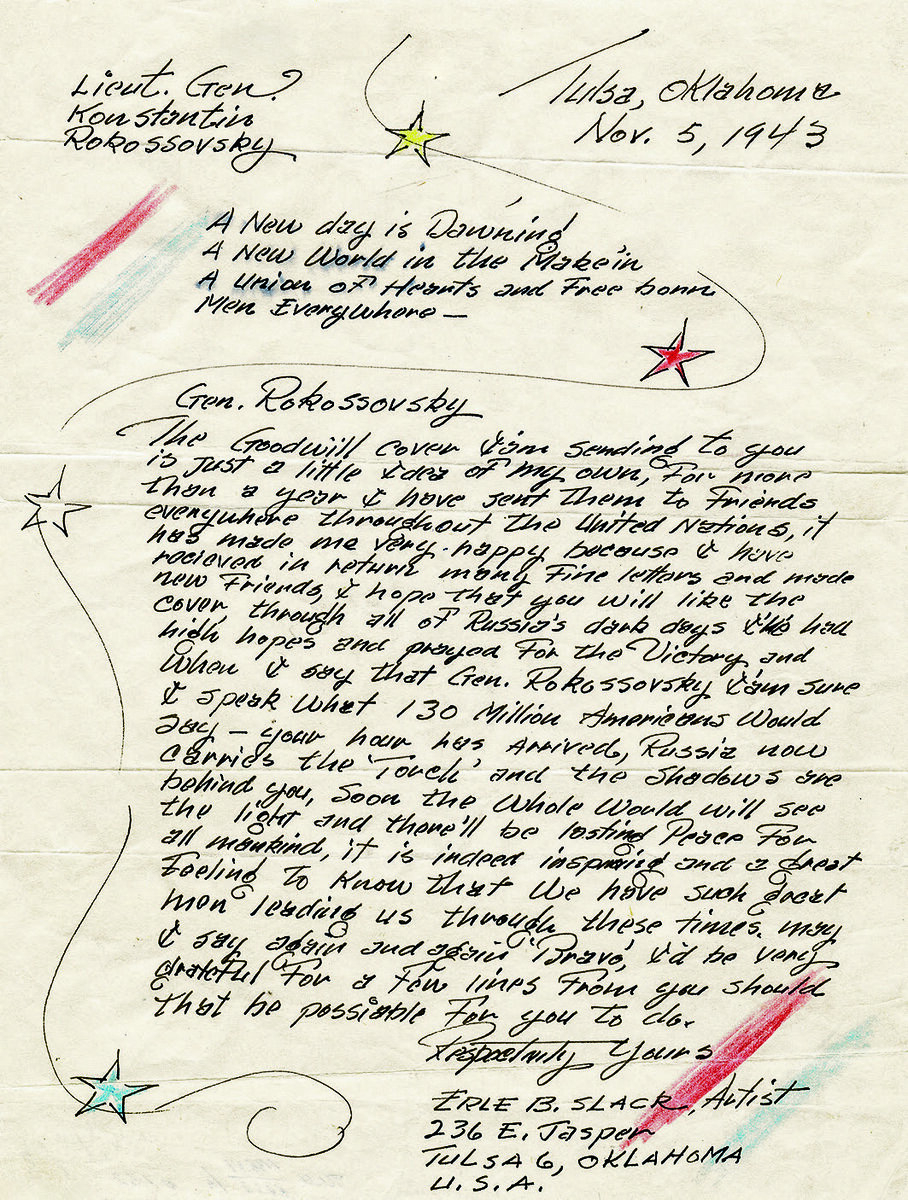 Lieut. Gen.
Konstantin
Rokossovsky
Tulsa, Oklahoma
Nov. 5, 1943
A New day is Dawning
A New World in the Make'in
A Union of Hearts and Free born
Men Everywhere —
Gen. Rokossovsky
The Goodwill cover I'am sending to you
is just a little idea of my own, For more
than a year I have sent them to Friends
everywhere throughout the United Nations, it
has made me very happy because I have
recieved in return many Fine letters and made
new Friends, I hope that you will like the
cover, through all of Russia's dark days I've had
high hopes and prayed For the Victory, and
When I say that Gen. Rokossovsky I'am sure
I speak What 130 Million Americans Would
say — your hour has Arrived, Russia now
carries the 'Torch' and the Shadows are
behind you, Soon the Whole Would will see
the light and there'll be lasting Peace For
all mankind, it is indeed inspiring and a great
Feeling to Know that We have such great
men leading us through these times. may
I say again and again 'Bravo', I'd be very
grateful For a Few lines From you should
that be possiable For you to do.
Respectfully Yours
ERLE B. SLACK, Artist
236 E. Jasper
TULSA 6, OKLAHOMA
U.S.A.